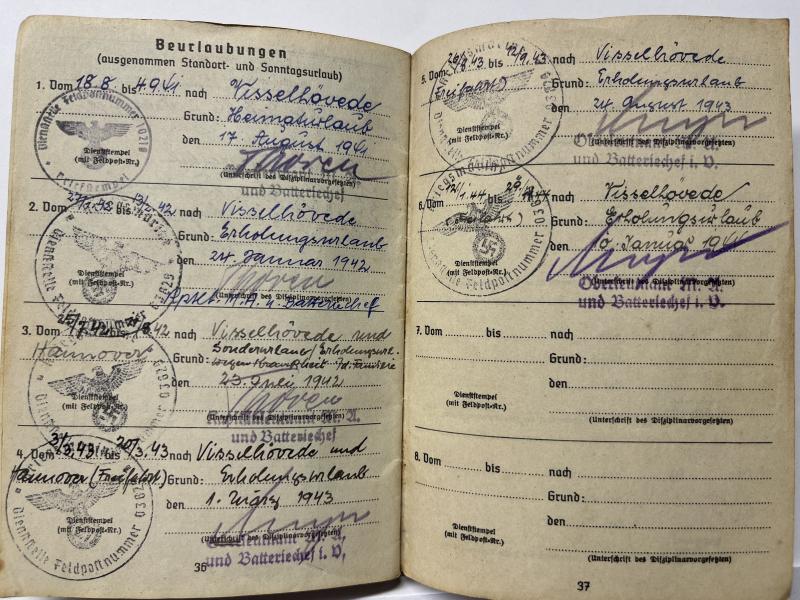 Beurlaubungen
(ausgenommen Standort- und Sonntagsurlaub)
1. Vom 18.8. bis 4.9.41 nach Visselhövede
Grund: Heimaturlaub
den 17. August 1941
Dienststempel
(mit Feldpost-Nr.)
(Unterschrift des Disziplinarvorgesetzten)
und Batteriechef
2. Vom bis 42 nach Visselhövede
Grund: Erholungsurlaub
den 24. Januar 1942
Dienststempel
(mit Feldpost-Nr.)
(Unterschrift des Disziplinarvorgesetzten)
M.A. u. Batteriechef
3. Vom 25/7.42 bis 42 nach Visselhövede und
Hannover Grund: Sonderurlaub/Erholungsurl.
wegen Krankheit i/d. Familie
den 23. Juli 1942
Dienststempel
(mit Feldpost-Nr.)
(Unterschrift des Disziplinarvorgesetzten)
M. A.
und Batteriechef
4. Vom 3/3.43. bis 20/3.43 nach Visselhövede und
Hannover (Freifahrt) Grund: Erholungsurlaub
den 1. März 1943
Dienststempel
(mit Feldpost-Nr.)
(Unterschrift des Disziplinarvorgesetzten)
Oberleutnant M. A.
und Batteriechef i. V.
36
5. Vom 8.43 bis 9.43 nach Visselhövede
(Freifahrt) Grund: Erholungsurlaub
den 24. August 1943
Dienststempel
(mit Feldpost-Nr.)
(Unterschrift des Disziplinarvorgesetzten)
und Batteriechef i. V.
6. Vom 1.44 bis 44 nach Visselhövede
Grund: Erholungsurlaub
den Januar
Dienststempel
(mit Feldpost-Nr.)
(Unterschrift des Disziplinarvorgesetzten)
Oberleutnant M. A.
und Batteriechef i. V.
7. Vom bis nach
Grund:
den
Dienststempel
(mit Feldpost-Nr.)
(Unterschrift des Disziplinarvorgesetzten)
8. Vom bis nach
Grund:
den
Dienststempel
(mit Feldpost-Nr.)
(Unterschrift des Disziplinarvorgesetzten)
37